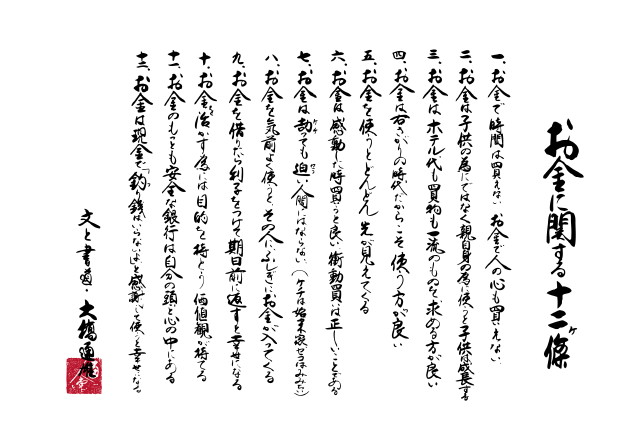 お金に関する十二ヶ條
一、お金で時間は買えない お金で人の心も買えない
二、お金は子供の為にではなく親自身の為に使うと子供は成長する
三、お金はホテル代も買物も一流のものを求める方が良い
四、お金は右さがりの時代だからこそ使う方が良い
五、お金を使うとどんどん先が見えてくる
六、お金は感動した時買うと良い 衝動買いは正しいことである
七、お金は劫っても迫い人間にはならない(ケチは始末屋 せこはみみっい)
八、お金を気前よく使うと、その人にふしぎにお金が入ってくる
九、お金を借りたら利子をつけて期日前に返すと幸せになる
十、お金を活かす為には目的を持とう 価値観が持てる
十一、お金のもっとも安全な銀行は自分の頭と心の中にある
十二、お金は現金で「釣り銭はいらないよ」と感謝して使うと幸せになる
文と書道・大橋